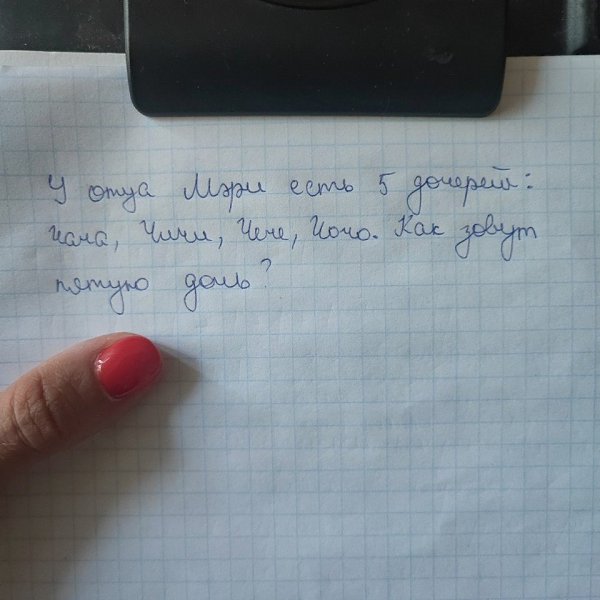 У отца Мэри есть 5 дочерей:
Чача, Чичи, Чече, Чочо. Как зовут
пятую дочь?